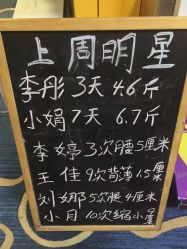 上周明星
李彤3天4.6斤
小娟7天6.7斤
李婷3次腰5厘米
王佳9次背薄1.5厘
刘娜5次腿4厘米
小月10次缩小屋